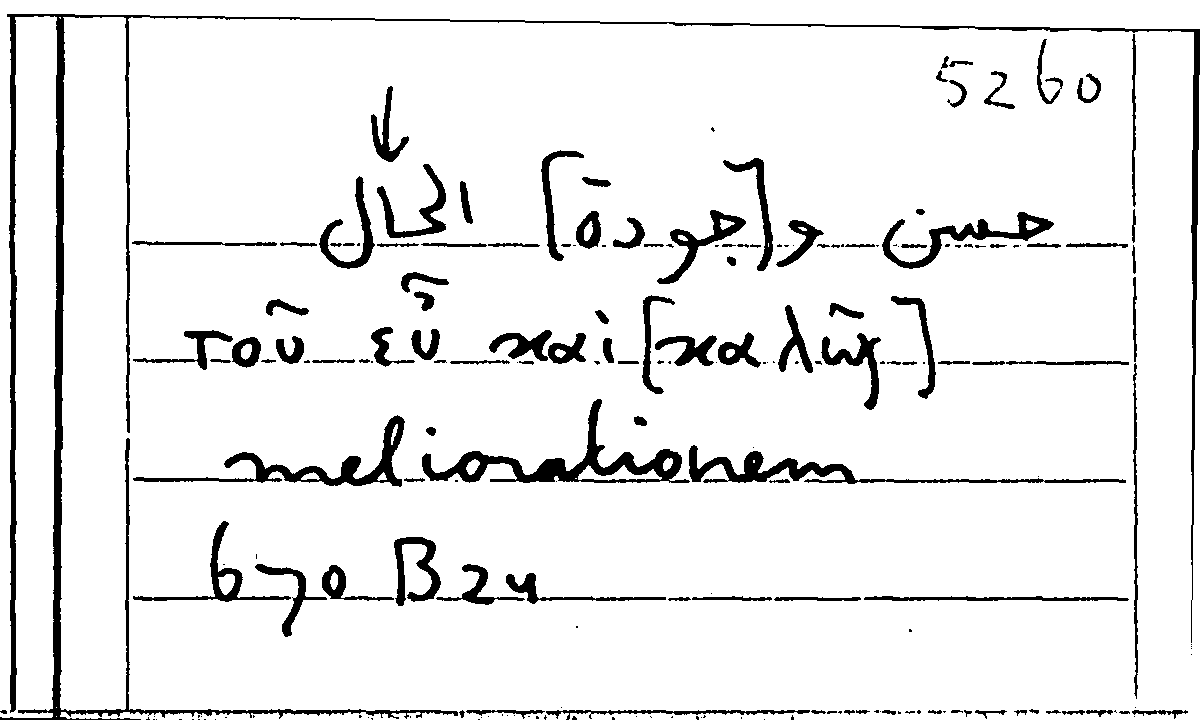 5260
↓
حسن و[جودة] الحال
τοῦ εὖ καὶ [καλῶς]
meliorationem
670 B 24